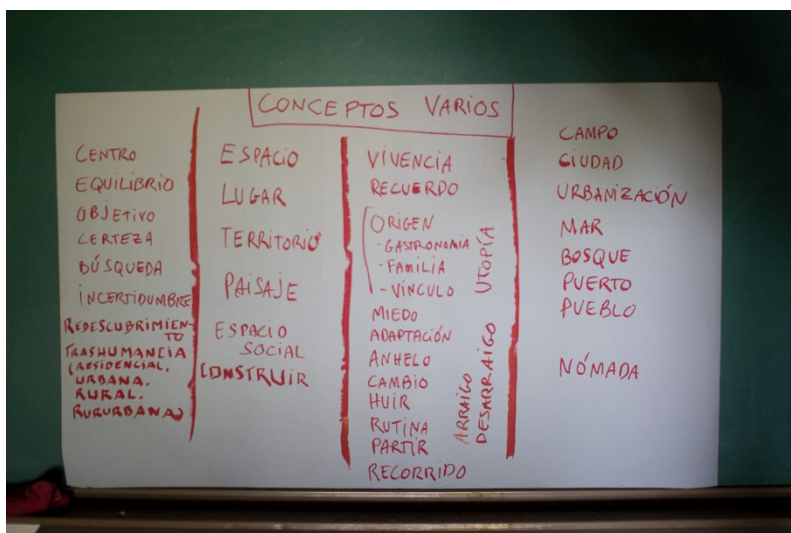 CONCEPTOS VARIOS
CENTRO
EQUILIBRIO
OBJETIVO
CERTEZA
BÚSQUEDA
INCERTIDUMBRE
REDESCUBRIMIEN-
TO
TRASHUMANCIA
(RESIDENCIAL,
URBANA,
RURAL,
RURURBANA)
ESPACIO
LUGAR
TERRITORIO
PAISAJE
ESPACIO
SOCIAL
CONSTRUIR
VIVENCIA
RECUERDO
ORIGEN
- GASTRONOMIA
- FAMILIA
- VÍNCULO
MIEDO
ADAPTACIÓN
ANHELO
CAMBIO
HUIR
RUTINA
PARTIR
RECORRIDO
UTOPÍA
ARRAIGO
DESARRAIGO
CAMPO
CIUDAD
URBANIZACIÓN
MAR
BOSQUE
PUERTO
PUEBLO
NÓMADA